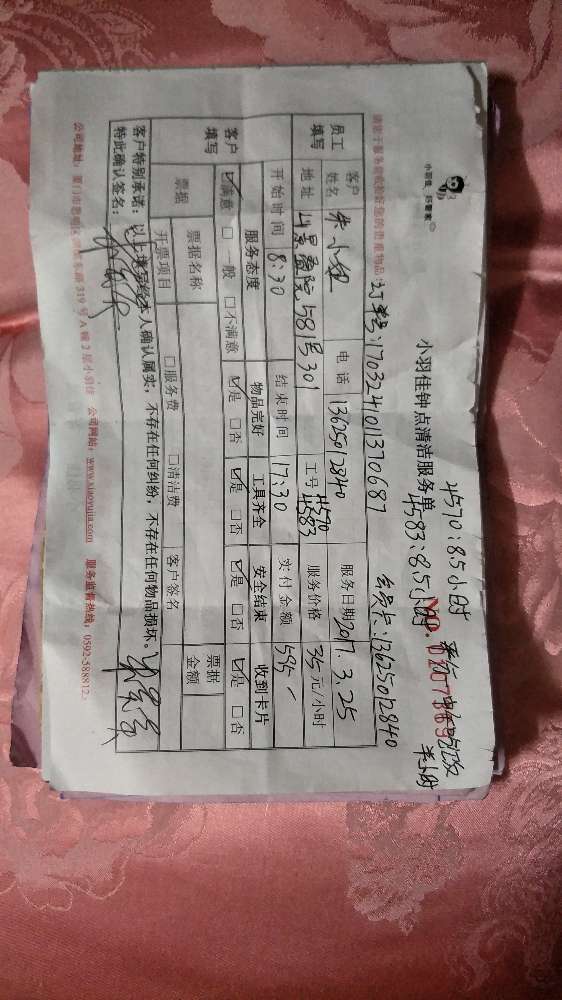 4570:8.5小时
4583:8.5小时. 乘
半小时
小羽佳 好管家
小羽佳钟点清洁服务单
NO.0107869
会员卡:13625012840
订单号:170324101370687
员工填写
客户姓名 朱小姐 电话 13625012840 服务日期 2017.3.25
地址 581号301 工号 4570 4583 服务价格 35元/小时
开始时间 8:30 结束时间 17:30 实付金额 595
客户填写
服务态度 物品完好 工具齐全 安全结束 收到卡片
☑满意 □一般 □不满意 ☑是 □否 ☑是 □否 ☑是 □否 ☑是 □否
票据 票据名称 □服务费 □清洁费 客户签名 票据金额
开票项目
客户特别承诺:以上填写经本人确认属实,不存在任何纠纷,不存在任何物品损坏。
特此确认签名:
319号A幢2层小羽佳 公司网站:www.xiaoyujia.com 服务监督热线:0592-588812